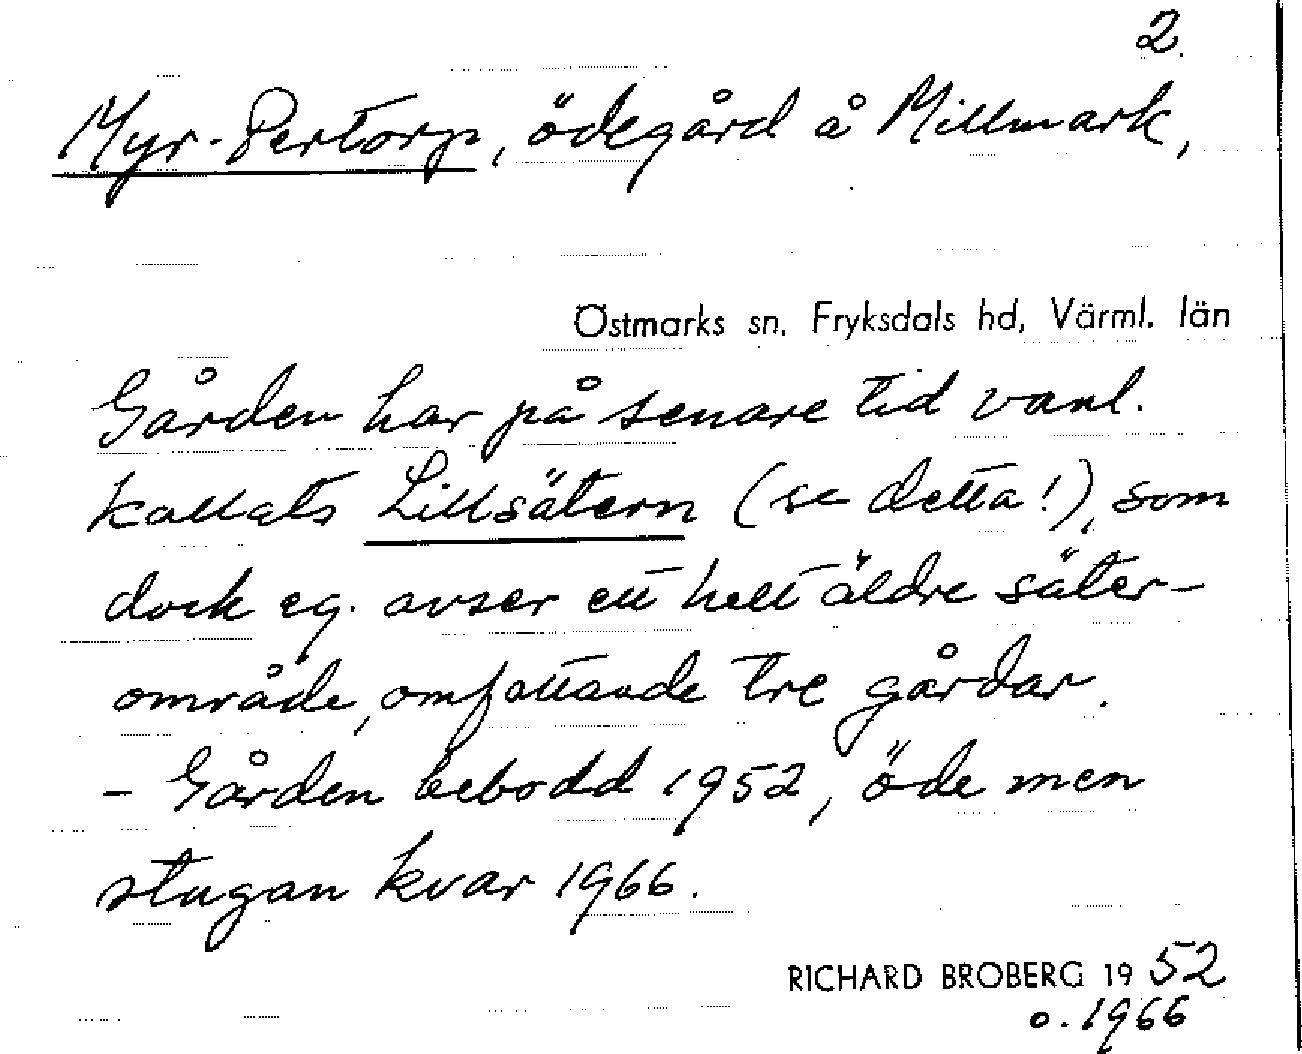 2.
Myr-Pertorp, ödegård å Millmark,
Östmarks sn, Fryksdals hd, Värml. län
Gården har på senare tid vanl.
kallats Lillsätern (se detta!), som
dock eg. avser ett helt äldre säter-
område, omfattande tre gårdar.
- Gården bebodd 1952, öde men
stugan kvar 1966.
RICHARD BROBERG 1952
o. 1966